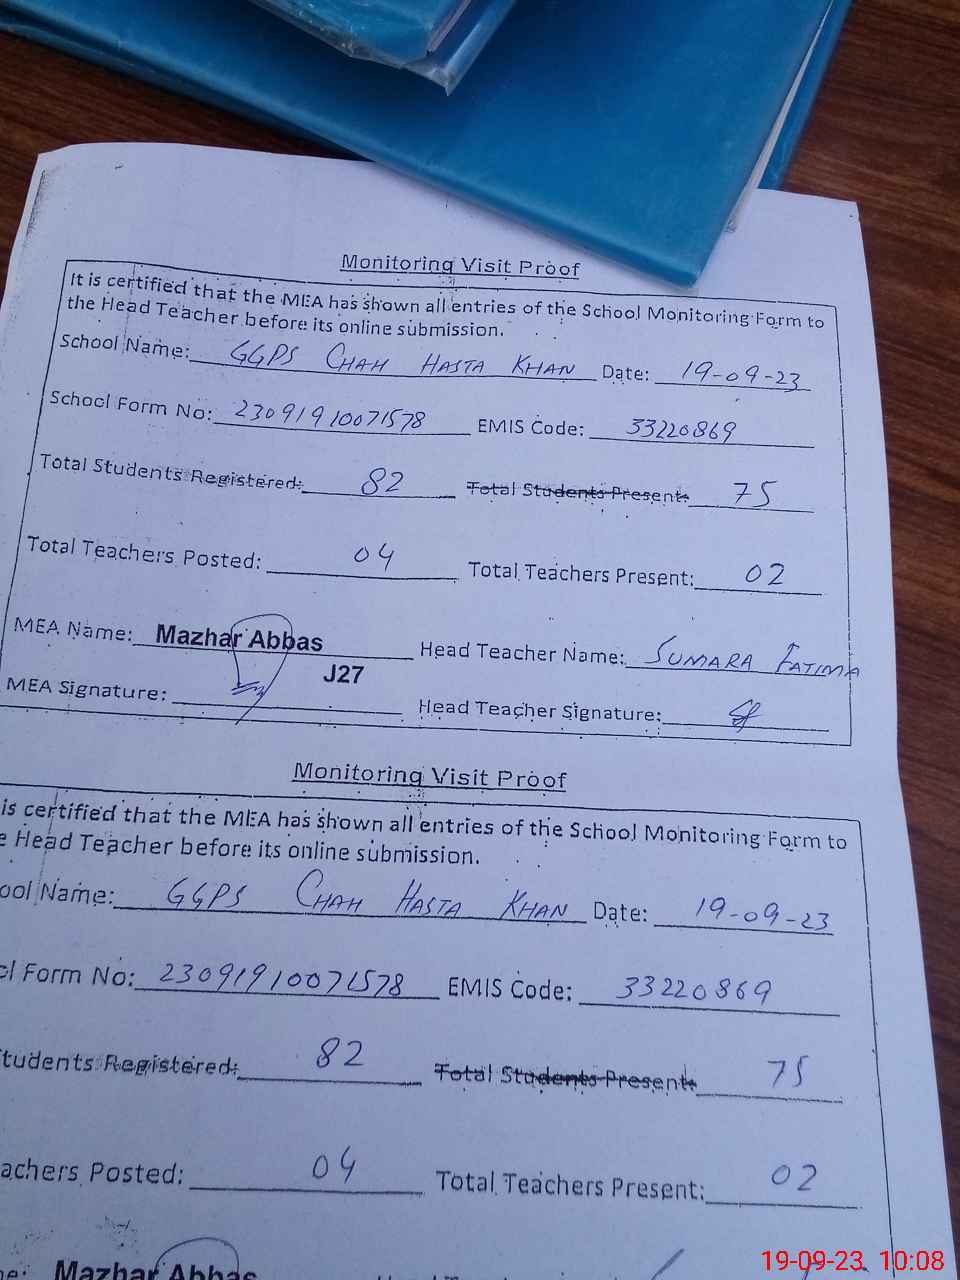 Monitoring Visit Proof
It is certified that the MEA has shown all entries of the School Monitoring Form to
the Head Teacher before its online submission.
School Name: GGPS CHAH HASTA KHAN Date: 19-09-23
School Form No: 23091910071578 EMIS Code: 33220869
Total Students Registered: 82 Total Students Present: 75
Total Teachers Posted: 04 Total Teachers Present: 02
MEA Name: Mazhar Abbas Head Teacher Name: SUMARA FATIMA
J27
MEA Signature: Head Teacher Signature:
Monitoring Visit Proof
is certified that the MEA has shown all entries of the School Monitoring Form to
e Head Teacher before its online submission.
ool Name: GGPS CHAH HASTA KHAN Date: 19-09-23
ol Form No: 23091910071578 EMIS Code: 33220869
tudents Registered: 82 Total Students Present: 75
achers Posted: 04 Total Teachers Present: 02
me: Mazhar Abbas
19-09-23 10:08